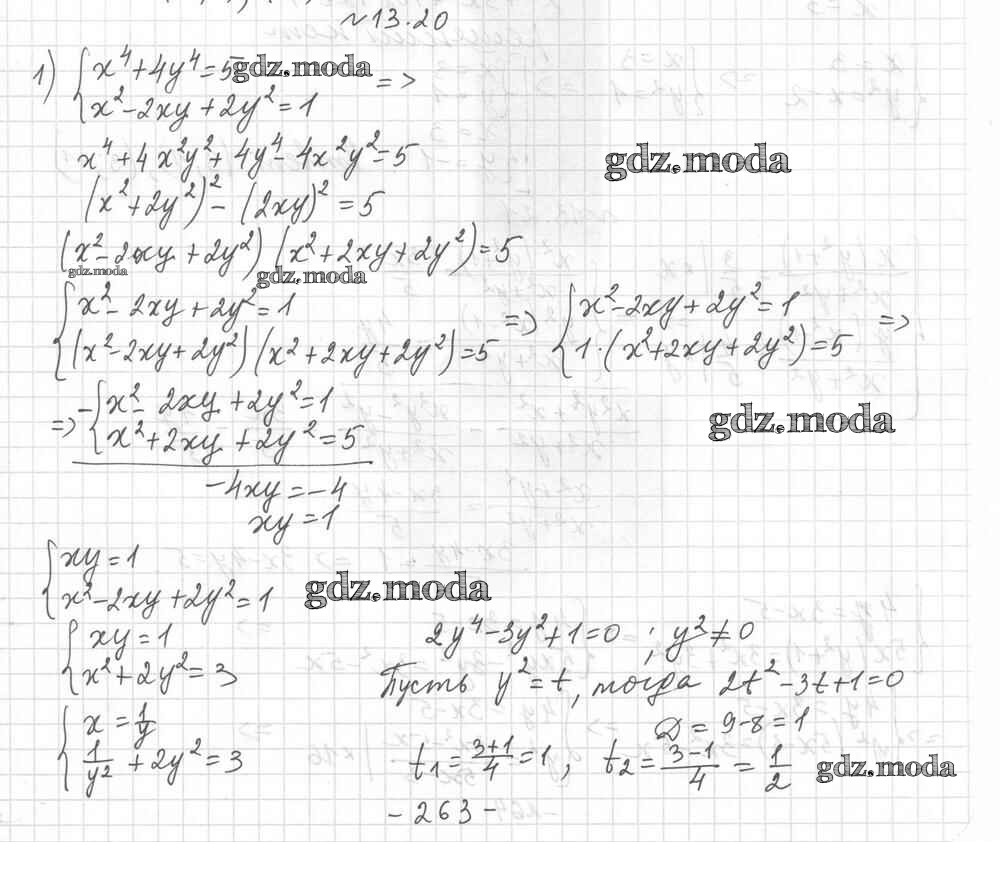 №13.20
1) { x⁴+4y⁴=5 gdz.moda
{ x²-2xy+2y²=1 =>
x⁴+4x²y²+4y⁴-4x²y²=5
gdz.moda
(x²+2y²)²-(2xy)²=5
(x²-2xy+2y²)(x²+2xy+2y²)=5
gdz.moda gdz.moda
{ x²-2xy+2y²=1
{ (x²-2xy+2y²)(x²+2xy+2y²)=5 =>
{ x²-2xy+2y²=1
{ 1·(x²+2xy+2y²)=5 =>
=> - { x²-2xy+2y²=1
{ x²+2xy+2y²=5
gdz.moda
-4xy=-4
xy=1
{ xy=1
{ x²-2xy+2y²=1
gdz.moda
{ xy=1
{ x²+2y²=3
{ x=1/y
{ 1/y²+2y²=3
2y⁴-3y²+1=0 ; y²≠0
Пусть y²=t, тогда 2t²-3t+1=0
D=9-8=1
t₁=(3+1)/4=1, t₂=(3-1)/4=1/2 gdz.moda
-263-